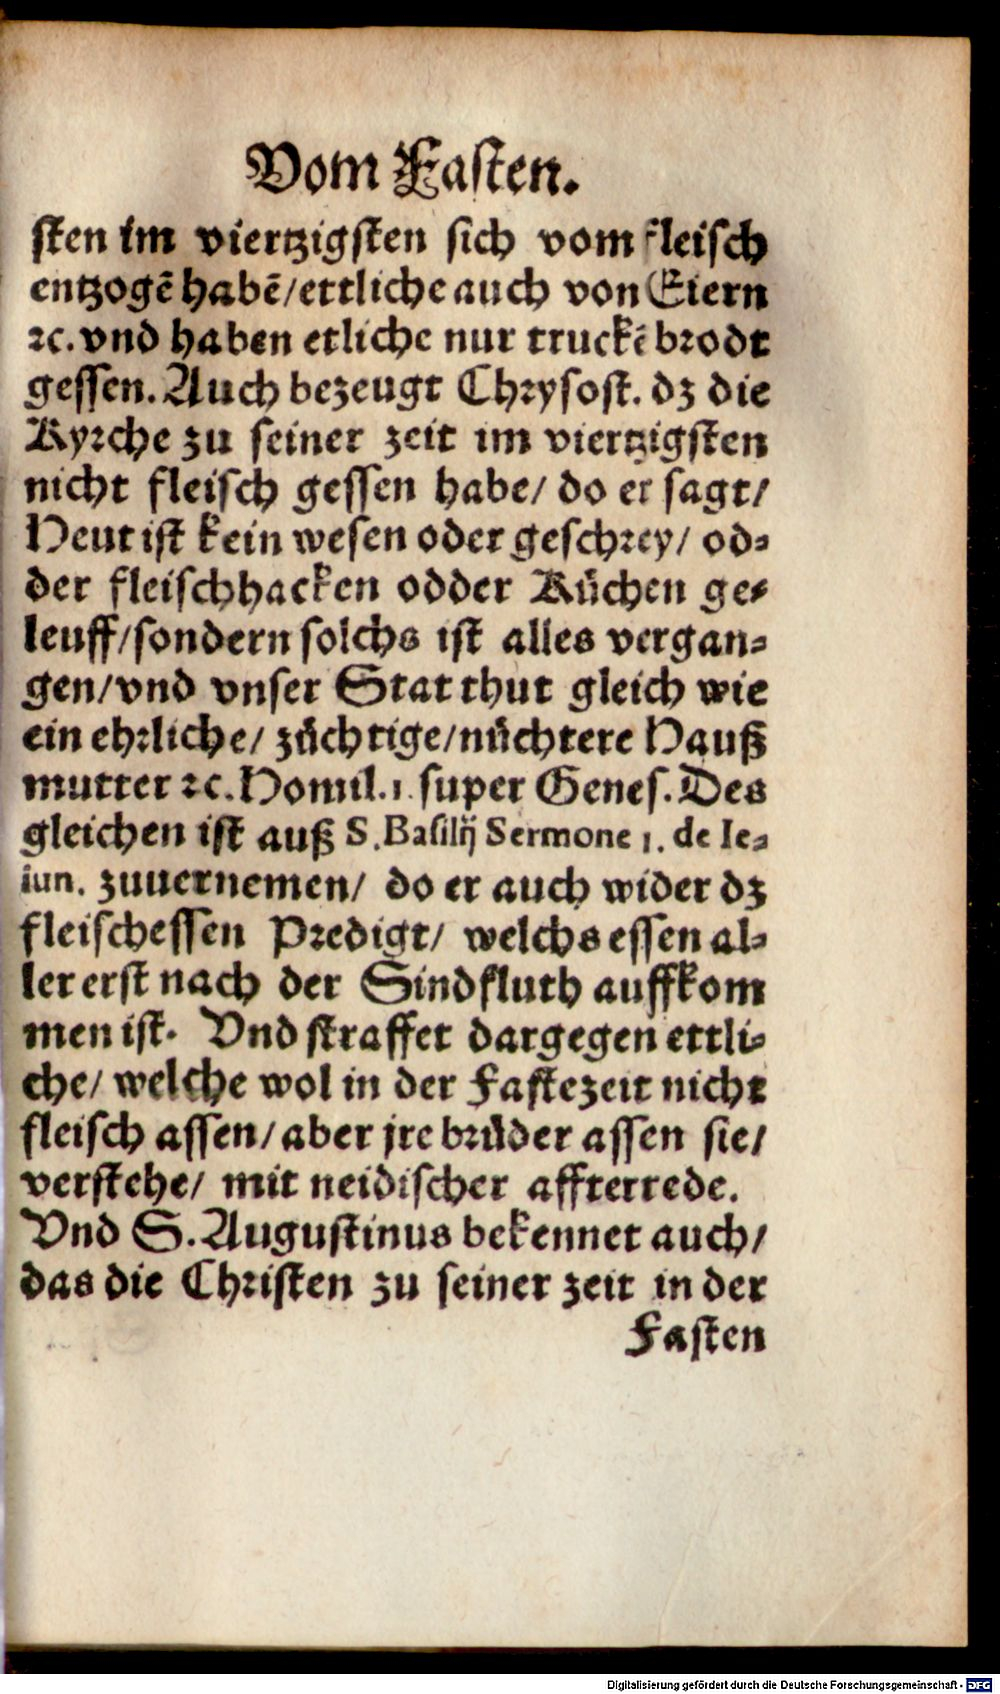 Vom Fasten.
sten im viertzigsten sich vom fleisch
entzogẽ habẽ/ettliche auch von Eiern
ꝛc. vnd haben etliche nur truckẽ brodt
gessen. Auch bezeugt Chrysost. dz die
Kyrche zu seiner zeit im viertzigsten
nicht fleisch gessen habe/ do er sagt/
Heut ist kein wesen oder geschrey/ od-
der fleischhacken odder Kuͤchen ge-
leuff/sondern solchs ist alles vergan-
gen/vnd vnser Stat thut gleich wie
ein ehrliche/ zuͤchtige/nuͤchtere Hauß
mutter ꝛc. Homil.1. super Genes. Des
gleichen ist auß S. Basilij Sermone 1. de Ie-
iun. zuuernemen/ do er auch wider dz
fleischessen Predigt/ welchs essen al-
ler erst nach der Sindfluth auffkom
men ist. Vnd straffet dargegen ettli-
che/ welche wol in der Fastezeit nicht
fleisch assen/aber jre bruͤder assen sie/
verstehe/ mit neidischer affterrede.
Vnd S. Augustinus bekennet auch/
das die Christen zu seiner zeit in der
Fasten
Digitalisierung gefördert durch die Deutsche Forschungsgemeinschaft - DFG